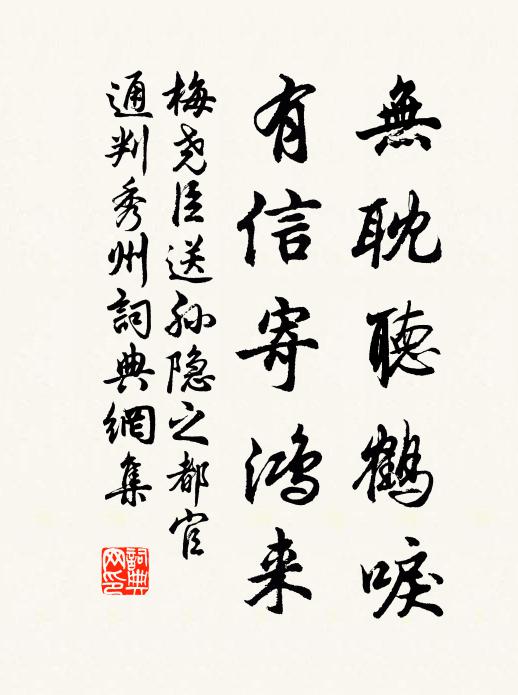 無耽聽鶴唳
有信寄鴻来
梅尧臣送孙隐之都官
通判秀州詞典網集
詞典网印